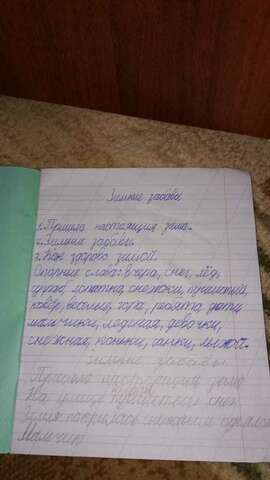 Зимние забавы
1. Пришла настоящая зима.
2. Зимние забавы.
3. Как здорово зимой.
Опорные слова: вчера, снег, лёд,
сугроб, лопатка, снежки, пушистый,
ковёр, весёлые, гора, ребята, дети
мальчики, ледяная, девочки,
снежная, коньки, санки, лыжи.
Зимние забавы.
Пришла настоящая зима
На улице снег
Земля покрылась снежным
Мальчик